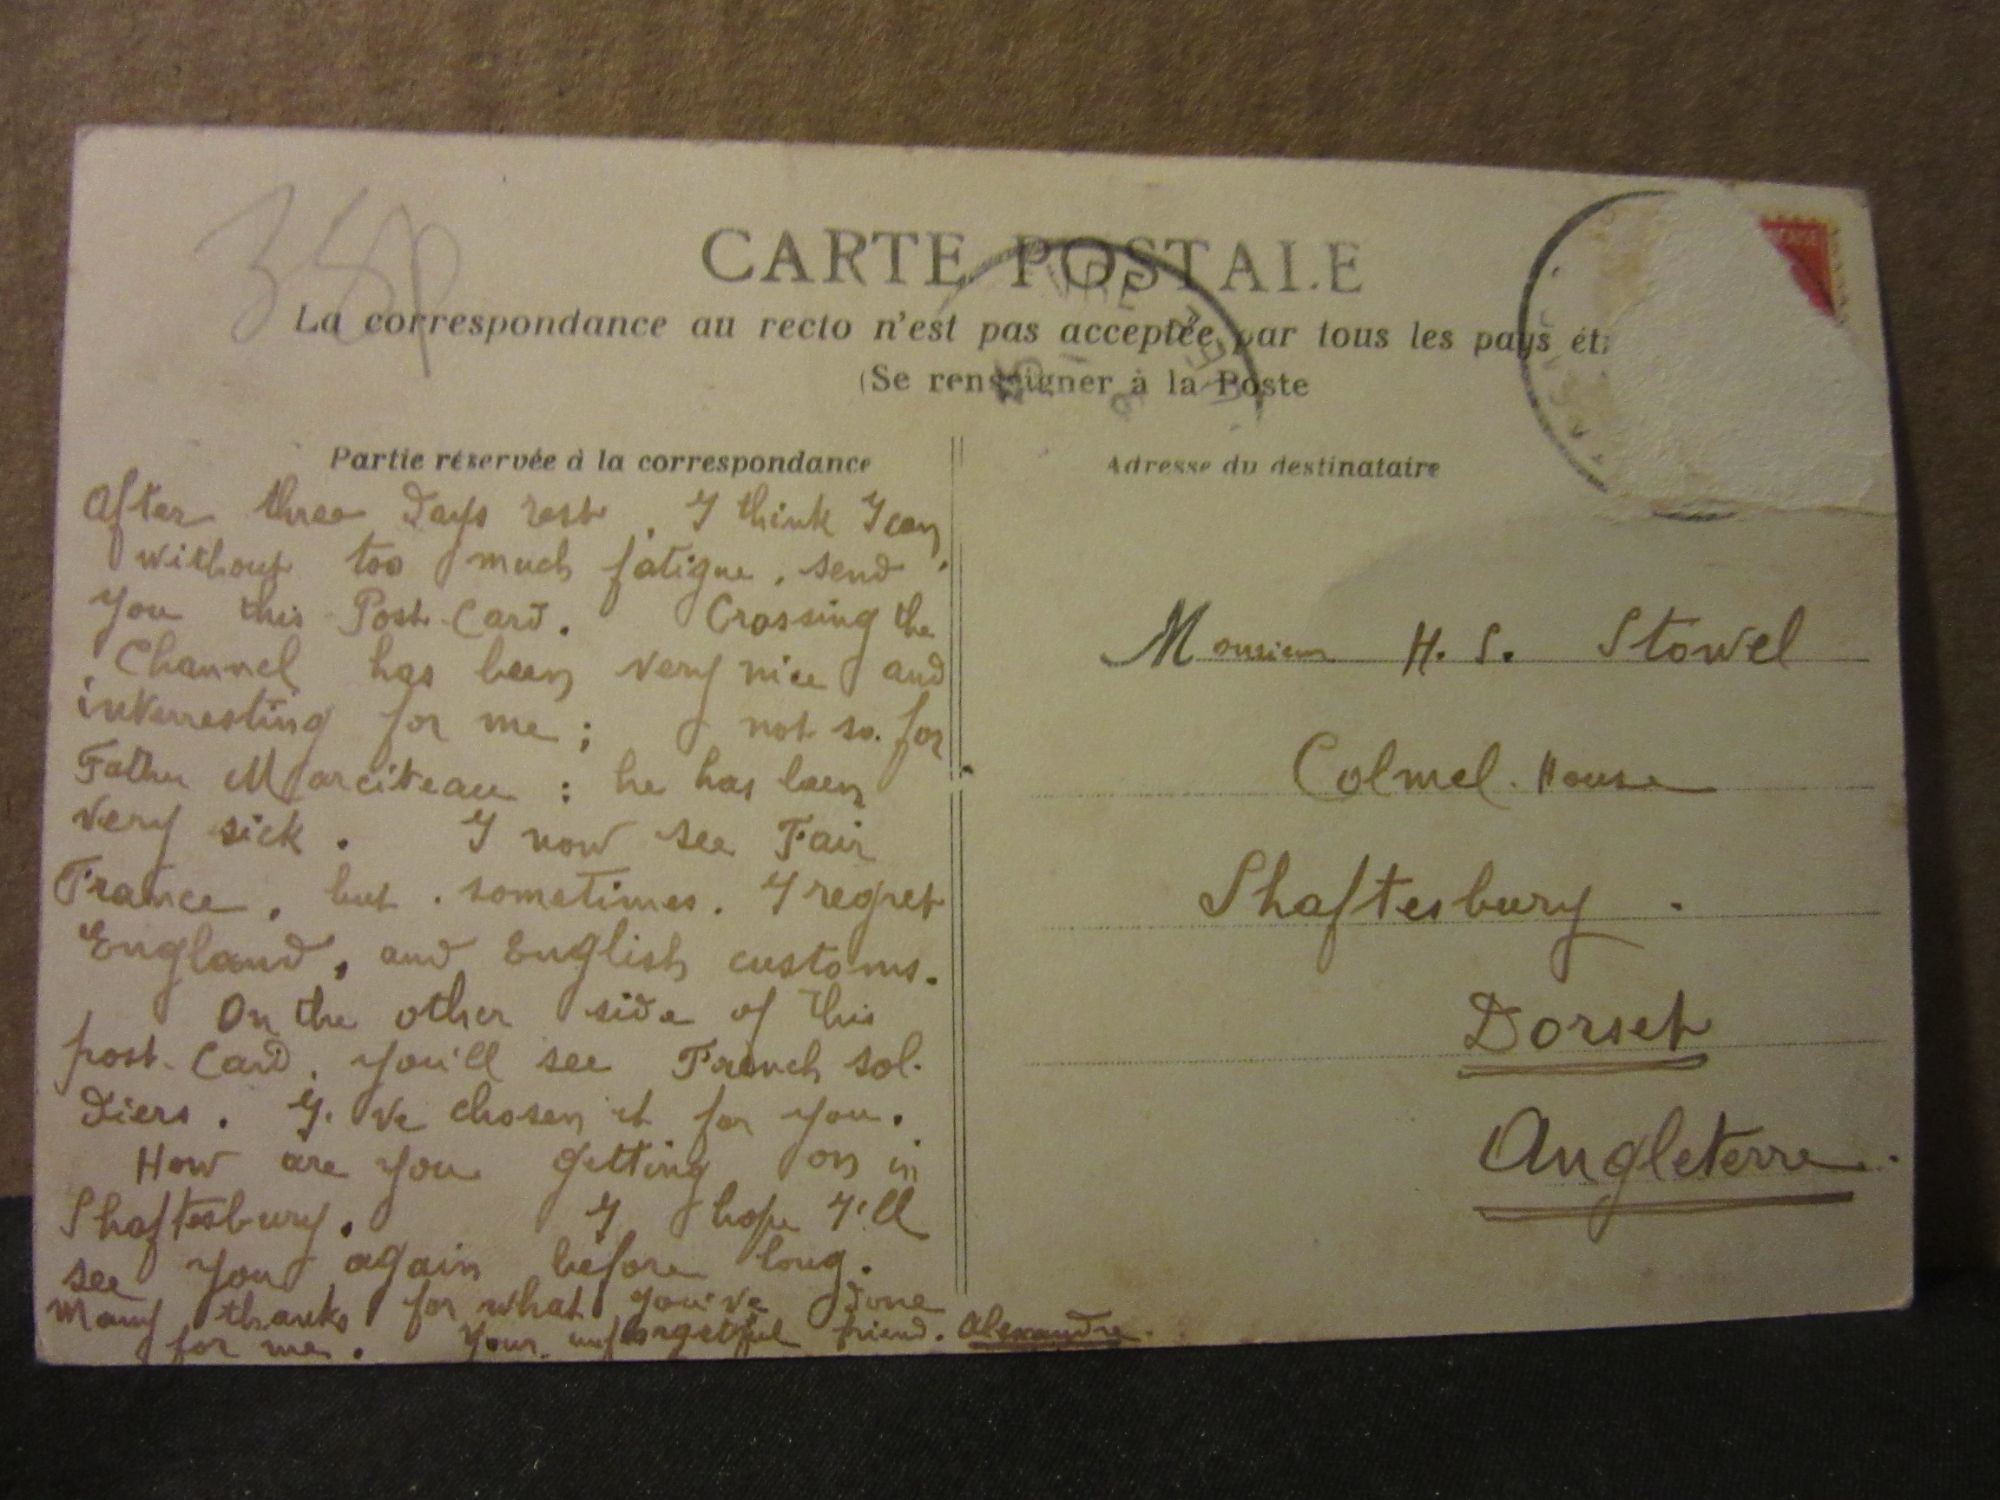 358p
CARTE POSTALE
La correspondance au recto n'est pas acceptée par tous les pays
(Se renseigner à la Poste
Partie réservée à la correspondance
After three days rest, I think I can,
without too much fatigue, send
you this Post-Card. Crossing the
Channel has been very nice and
interresting for me; not so for
Father Marciteau: he has been
very sick. I now see Fair
France, but sometimes I regret
England, and English customs.
On the other side of this
post-card, you'll see French sol-
diers. I've chosen it for you.
How are you getting on in
Shaftesbury. I hope I'll
see you again before long.
Many thanks for what you've done
for me. Your unforgetful friend. Alexandre.
Adresse du destinataire
Monsieur H. S. Stowel
Colmel-House
Shaftesbury.
Dorset
Angleterre.